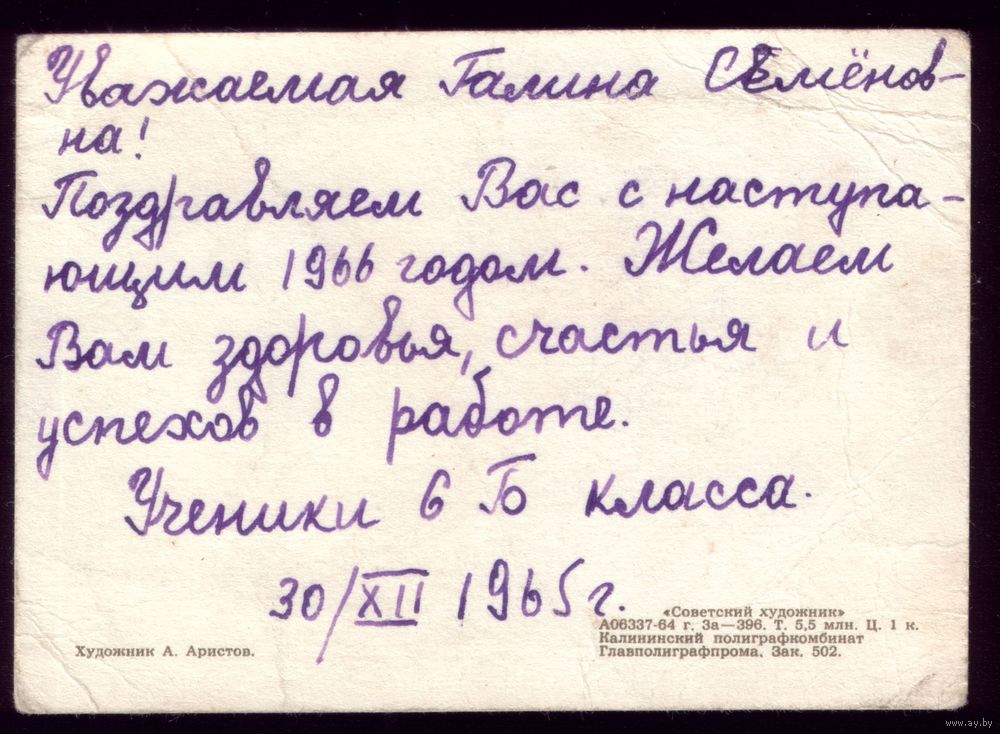 Уважаемая Галина Семёнов-
на!
Поздравляем Вас с наступа-
ющим 1966 годом. Желаем
Вам здоровья, счастья и
успехов в работе.
Ученики 6 Б класса.
30/XII 1965 г.
«Советский художник»
А06337-64 г. За—396. Т. 5,5 млн. Ц. 1 к.
Калининский полиграфкомбинат
Главполиграфпрома. Зак. 502.
Художник А. Аристов.
www.ay.by